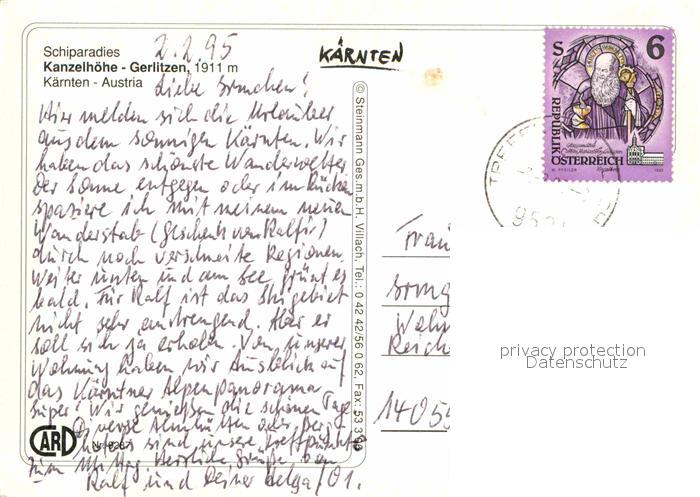 Schiparadies
Kanzelhöhe - Gerlitzen, 1911 m
Kärnten - Austria
2.2.95
KÄRNTEN
Hier melden sich die Urlauber
aus dem sonnigen Kärnten. Wir
haben das schönste Wanderwetter
Der Sonne entgegen oder im Rücken
spaziere ich mit meinem neuen
Wanderstab (Geschenk von Ralf)
durch noch verschneite Regionen
weiter unten und am See grünt es
bald. Für Ralf ist das Skigebiet
nicht sehr anstrengend. Aber er
soll sich ja erholen. Von unserer
Wohnung haben wir Ausblick auf
das Kärntner Alpenpanorama
super! Wir genießen die schönen Tage
Diverse Almhütten oder Berg-
sind unsere Treffpunkte
zum Mittag Herzliche Grüße von
Ralf und Deiner Helga
CARD
© Steinmann Ges.m.b.H. Villach, Tel.: 0 42 42/56 0 62, Fax:
S 6
REPUBLIK
ÖSTERREICH
Frau
140
privacy protection
Datenschutz